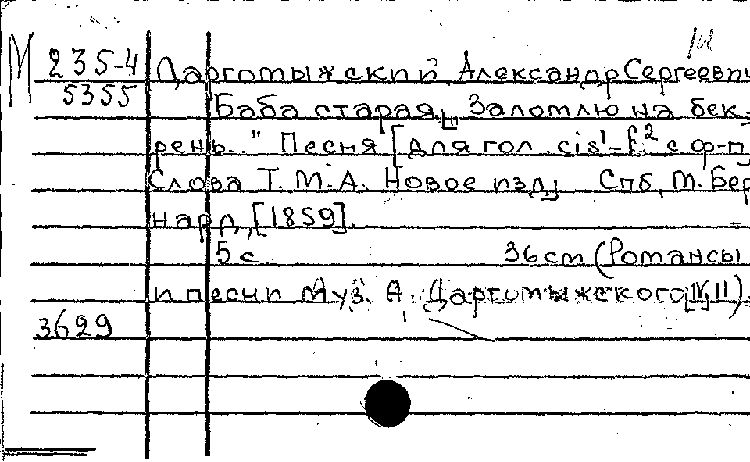 М 235-4 Даргомыжский, Александр Сергеевич
5355 Баба старая. „Заломлю на бек-
рень.." Песня [для гол. cis¹-f² с ф-п
Слова Т.М.А. Новое изд. Спб, М. Бер
нард, [1859].
5 с. 36 cm (Романсы
и песни Муз. А. Даргомыжского, II).
3629